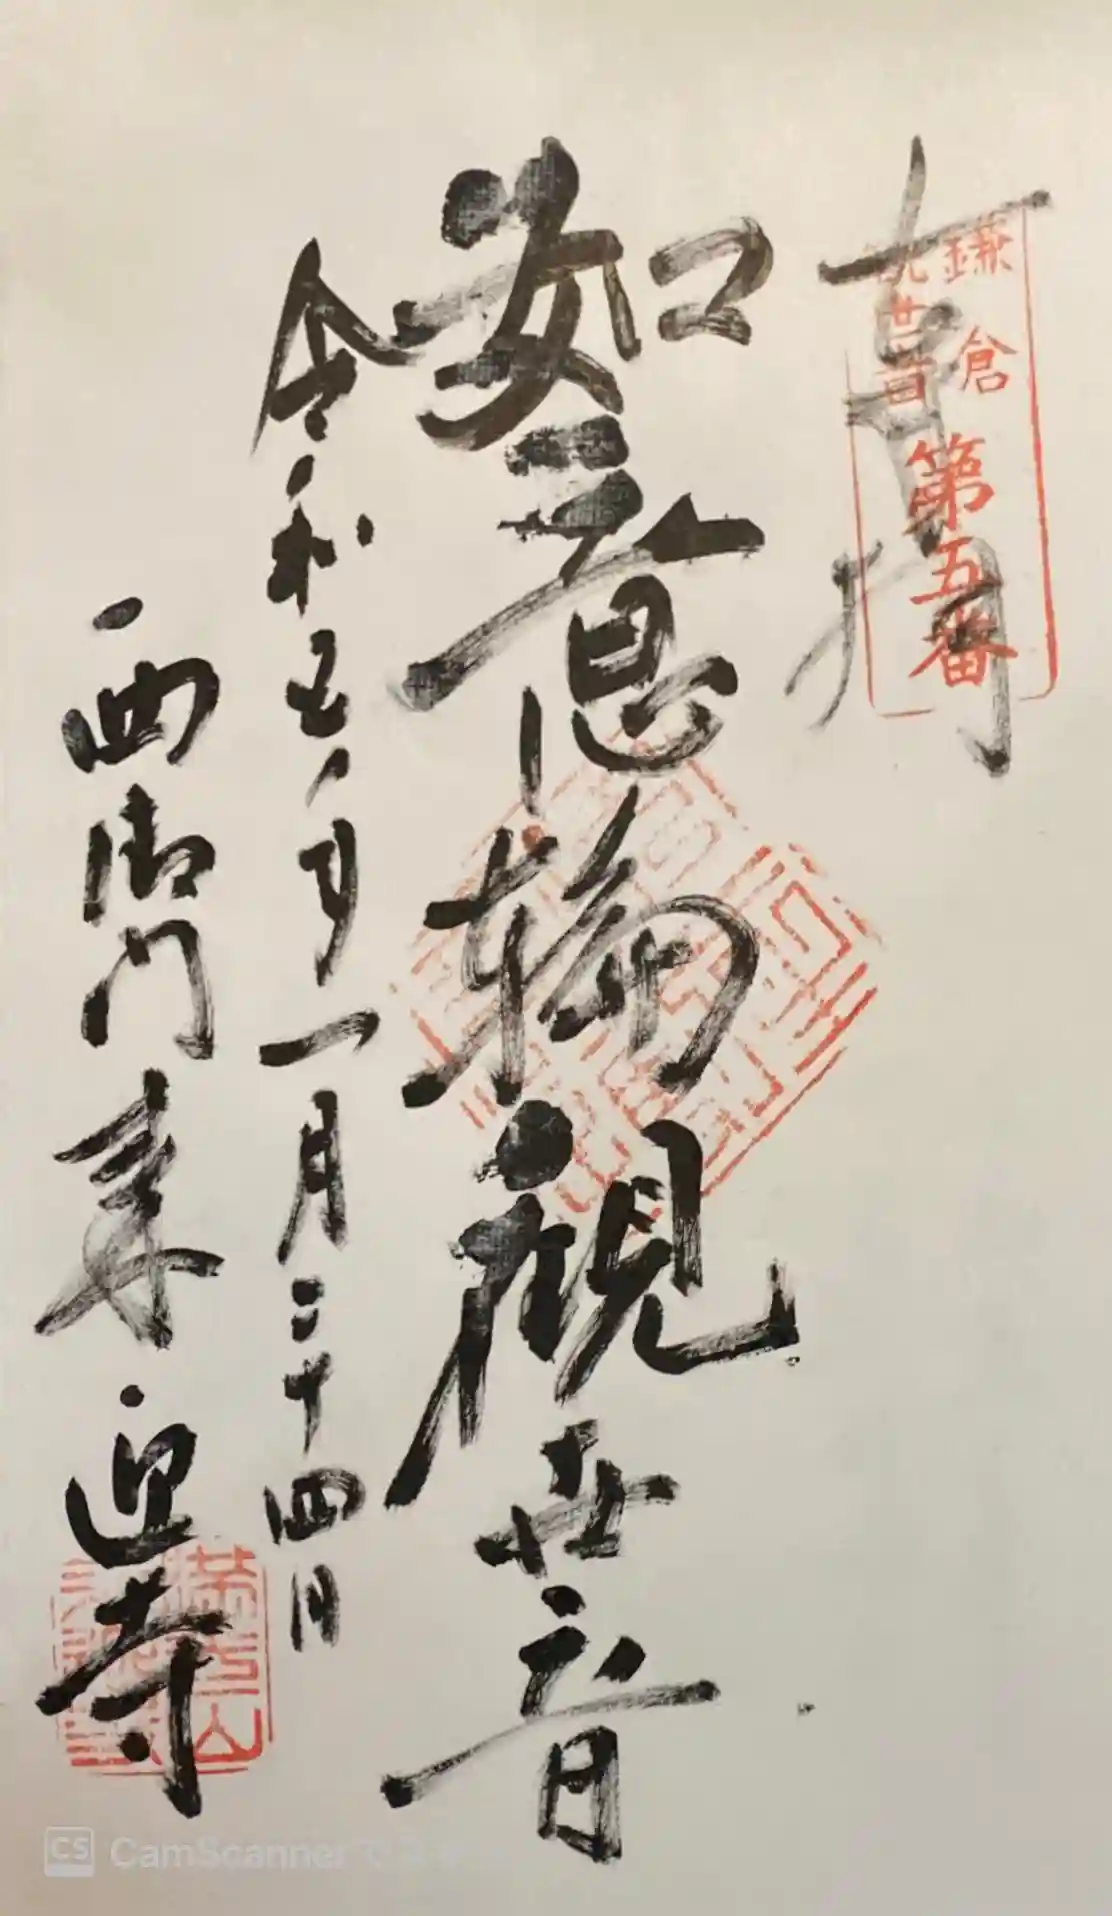 奉拝
鎌倉
第五番
如意輪観世音
令和五年一月二十四日
西御門来迎寺
CS CamScanner